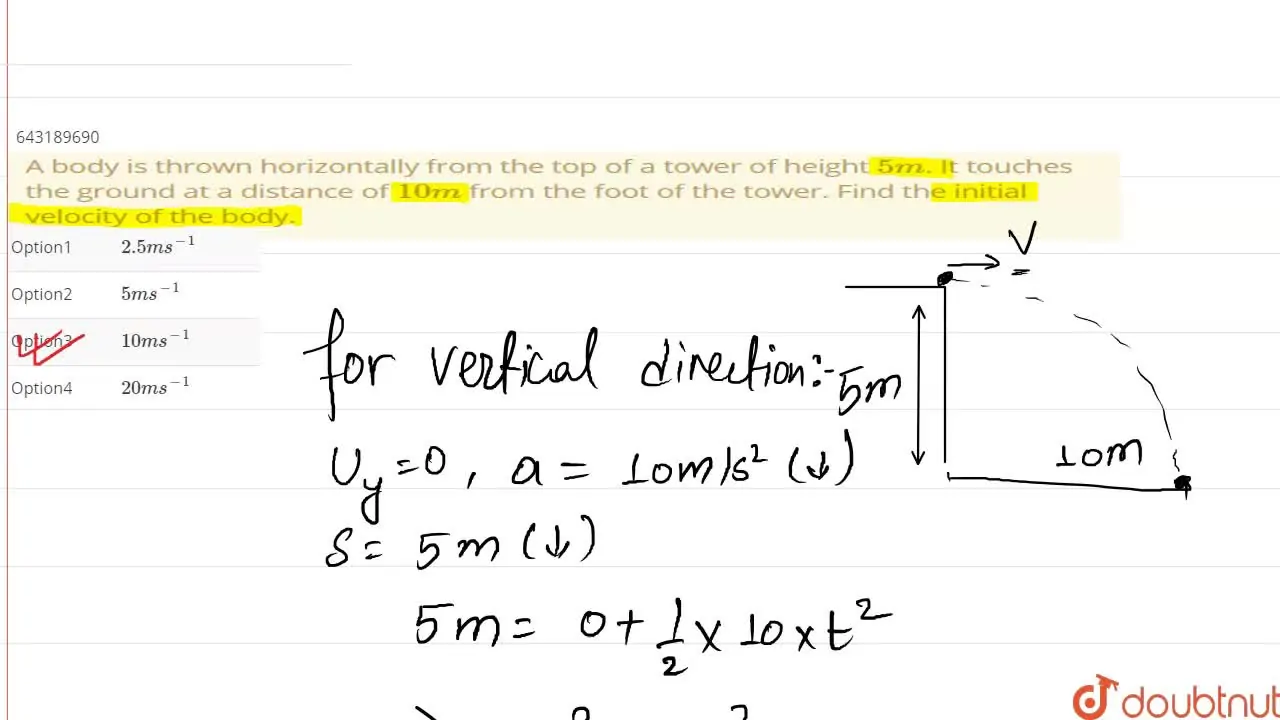 643189690
A body is thrown horizontally from the top of a tower of height 5m. It touches
the ground at a distance of 10m from the foot of the tower. Find the initial
velocity of the body.
Option1 2.5ms⁻¹
Option2 5ms⁻¹
Option3 10ms⁻¹
Option4 20ms⁻¹
V
for vertical direction:-
5m
10m
Uy=0, a = 10m/s² (↓)
S= 5m (↓)
5m = 0 + 1/2 × 10 × t²
doubtnut